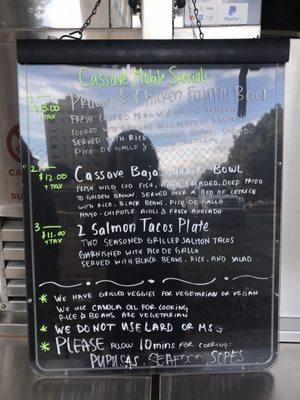 PayPal
Cassave Mobile Specials
1. Prawn & Chicken Fajita Bowl
$13.00 + TAX
FRESH COOKED PRAWNS & GRILLED CHICKEN
COOKED WITH BELL PEPPERS & ONIONS
SERVED WITH RICE, BEANS, SALAD,
PICO DE GALLO &
2. Cassave Baja Bowl
$12.00 + TAX
FRESH WILD COD FISH, HAND BREADED, DEEP FRIED
TO GOLDEN BROWN. SERVED OVER A BED OF LETTUCE
WITH RICE, BLACK BEANS, PICO DE GALLO
MAYO-CHIPOTLE AIOLI & FRESH AVOCADO
3. 2 Salmon Tacos Plate
$11.00 + TAX
TWO SEASONED GRILLED SALMON TACOS
GARNISHED WITH PICO DE GALLO
SERVED WITH BLACK BEANS, RICE, AND SALAD
* WE HAVE GRILLED VEGGIES FOR VEGETARIAN OR VEGAN
WE USE CANOLA OIL FOR COOKING
RICE & BEANS ARE VEGETARIAN
* WE DO NOT USE LARD OR MSG
* PLEASE ALLOW 10mins FOR COOKING:
PUPUSAS, SEAFOOD, SOPES